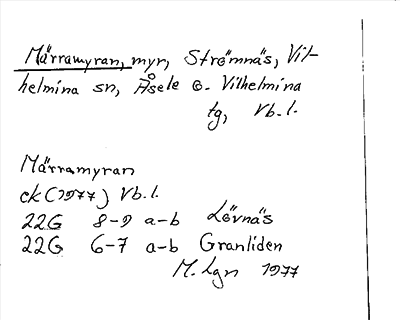 Märramyran, myr, Strömnäs, Vil-
helmina sn, Åsele o. Vilhelmina
tg, Vb.l.
Märramyran
ek (1977) Vb.l.
22G 8-9 a-b Lövnäs
22G 6-7 a-b Granliden
M.Lgn 1977